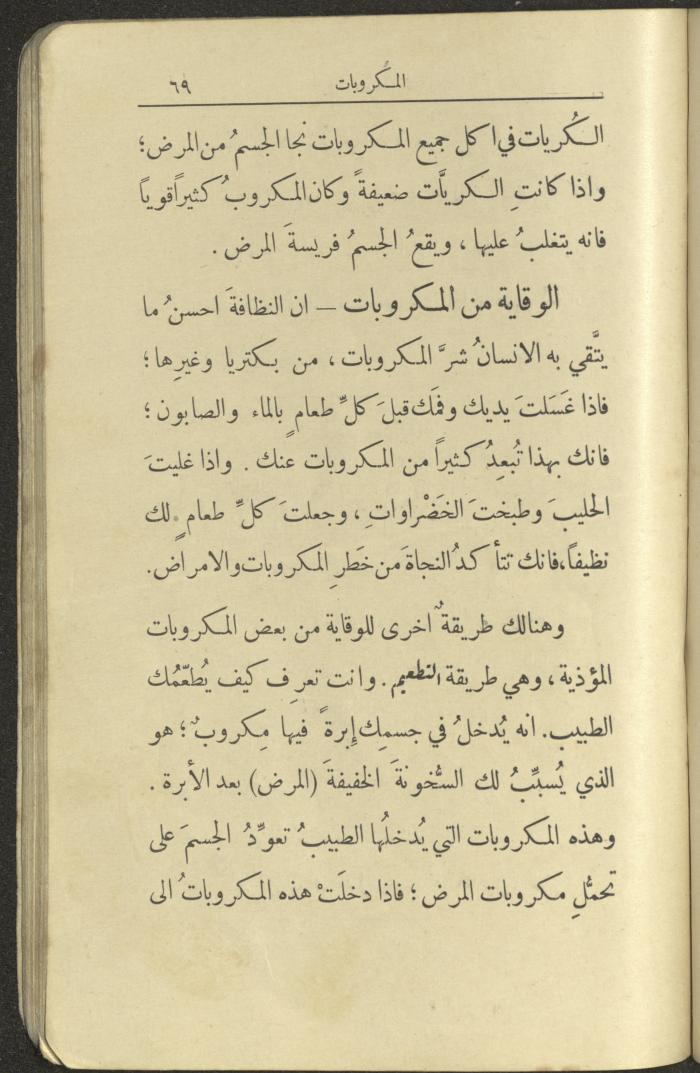 المكروبات ٦٩
الكُريات في اكل جميع المكروبات نجا الجسمُ من المرض؛
واذا كانتِ الكريَّات ضعيفةً وكان المكروبُ كثيراً قوياً
فانه يتغلبُ عليها ، ويقعُ الجسمُ فريسةَ المرض .
الوقاية من المكروبات — ان النظافةَ احسنُ ما
يتَّقي به الانسانُ شرَّ المكروبات ، من بكتريا وغيرِها ؛
فاذا غَسَلتَ يديك وفمَك قبلَ كلِّ طعامٍ بالماء والصابون ؛
فانك بهذا تُبعِدُ كثيراً من المكروبات عنك . واذا غليتَ
الحليبَ وطبختَ الخَضْراواتِ ، وجعلتَ كلَّ طعامٍ لك
نظيفاً، فانك تتأكدُ النجاةَ من خَطرِ المكروبات والامراض.
وهنالك طريقةٌ اخرى للوقاية من بعض المكروبات
المؤذية ، وهي طريقة التطعيم . وانت تعرِف كيف يُطعّمُك
الطبيب. انه يُدخلُ في جسمِك إبرةً فيها مِكروبٌ ؛ هو
الذي يُسبِّبُ لك السُّخونةَ الخفيفةَ (المرض) بعد الأبرة .
وهذه المكروبات التي يُدخلُها الطبيبُ تعوِّدُ الجسمَ على
تحمُّلِ مكروبات المرض ؛ فاذا دخلَتْ هذه المكروباتُ الى